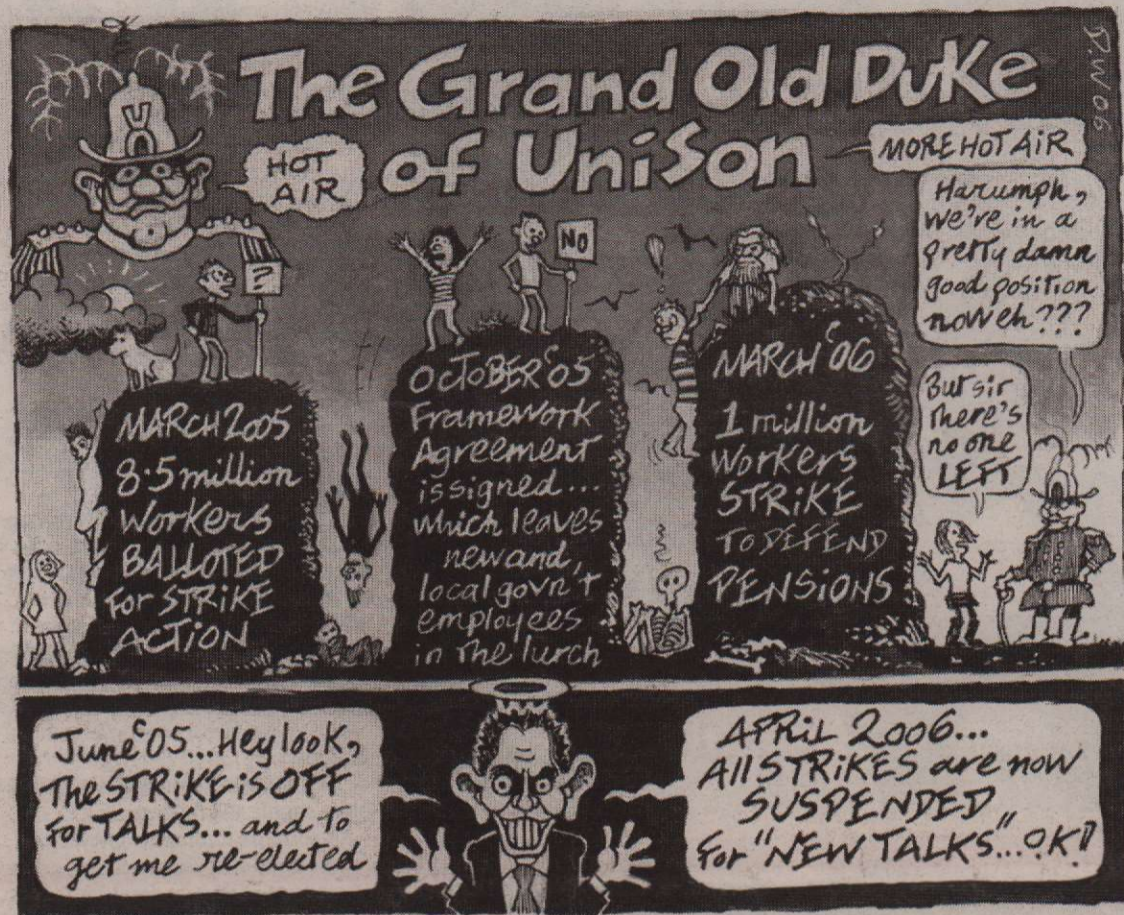 The Grand Old Duke
of UniSon
D.W 06
U
HOT
AIR
MORE HOT AIR
Harumph,
we're in a
pretty damn
good position
now eh???
?
NO
MARCH 2005
8.5 million
Workers
BALLOTED
For STRIKE
ACTION
OCTOBER '05
Framework
Agreement
is signed...
which leaves
new and,
local govn't
employees
in the lurch
MARCH '06
1 million
Workers
STRIKE
TO DEFEND
PENSIONS
But sir
there's
no one
LEFT
June '05... Hey look,
The STRIKE is OFF
For TALKS... and to
get me re-elected
APRIL 2006...
All STRIKES are now
SUSPENDED
For "NEW TALKS"... OK!